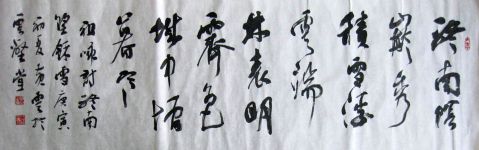 终南阴
岭秀
积雪浮
云端
林表明
霁色
城中增
暮寒
祖咏诗终南
望馀雪庚寅
初夏
云
堂